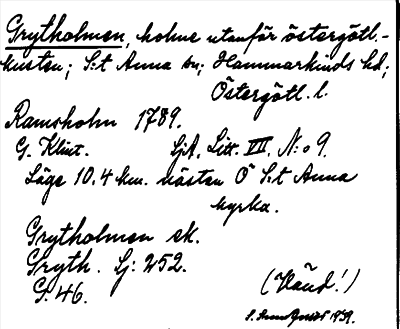 Grytholmen, holme utanför östergötl.-
kusten; S:t Anna sn; Hammarkinds hd;
Östergötl. l.
Ramsholm 1789.
G. Klint. SjA. Litt. VII, N:o 9.
Läge 10,4 km. nästan Ö S:t Anna
kyrka.
Grytholmen sk.
Gryth. Sj: 252.
G. 46.
(Händ!)
1939.